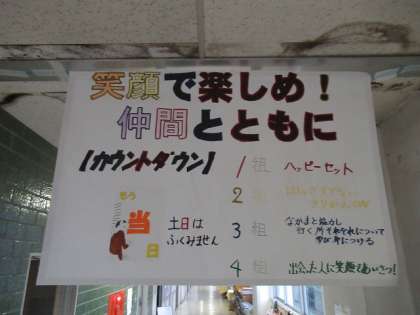 笑顔で楽しめ!
仲間とともに
【カウントダウン】
もう
当
日
土日は
ふくみません
1組 ハッピーセット
2組
3組 なかまと協力し
行く所それぞれについて
学び身につける
4組 出会った人に笑顔であいさつ!